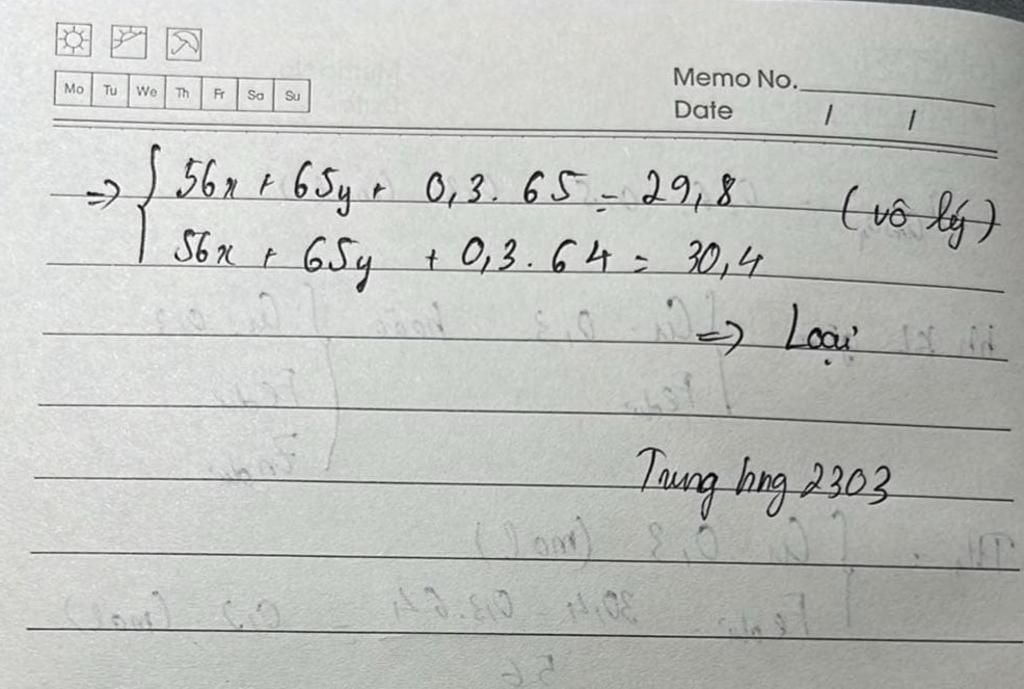 Mo Tu We Th Fr Sa Su
Memo No.
Date / /
=> { 56x + 65y + 0,3 . 65 = 29,8 (vô lý)
56x + 65y + 0,3 . 64 = 30,4
=> Loại
Trung hng 2303